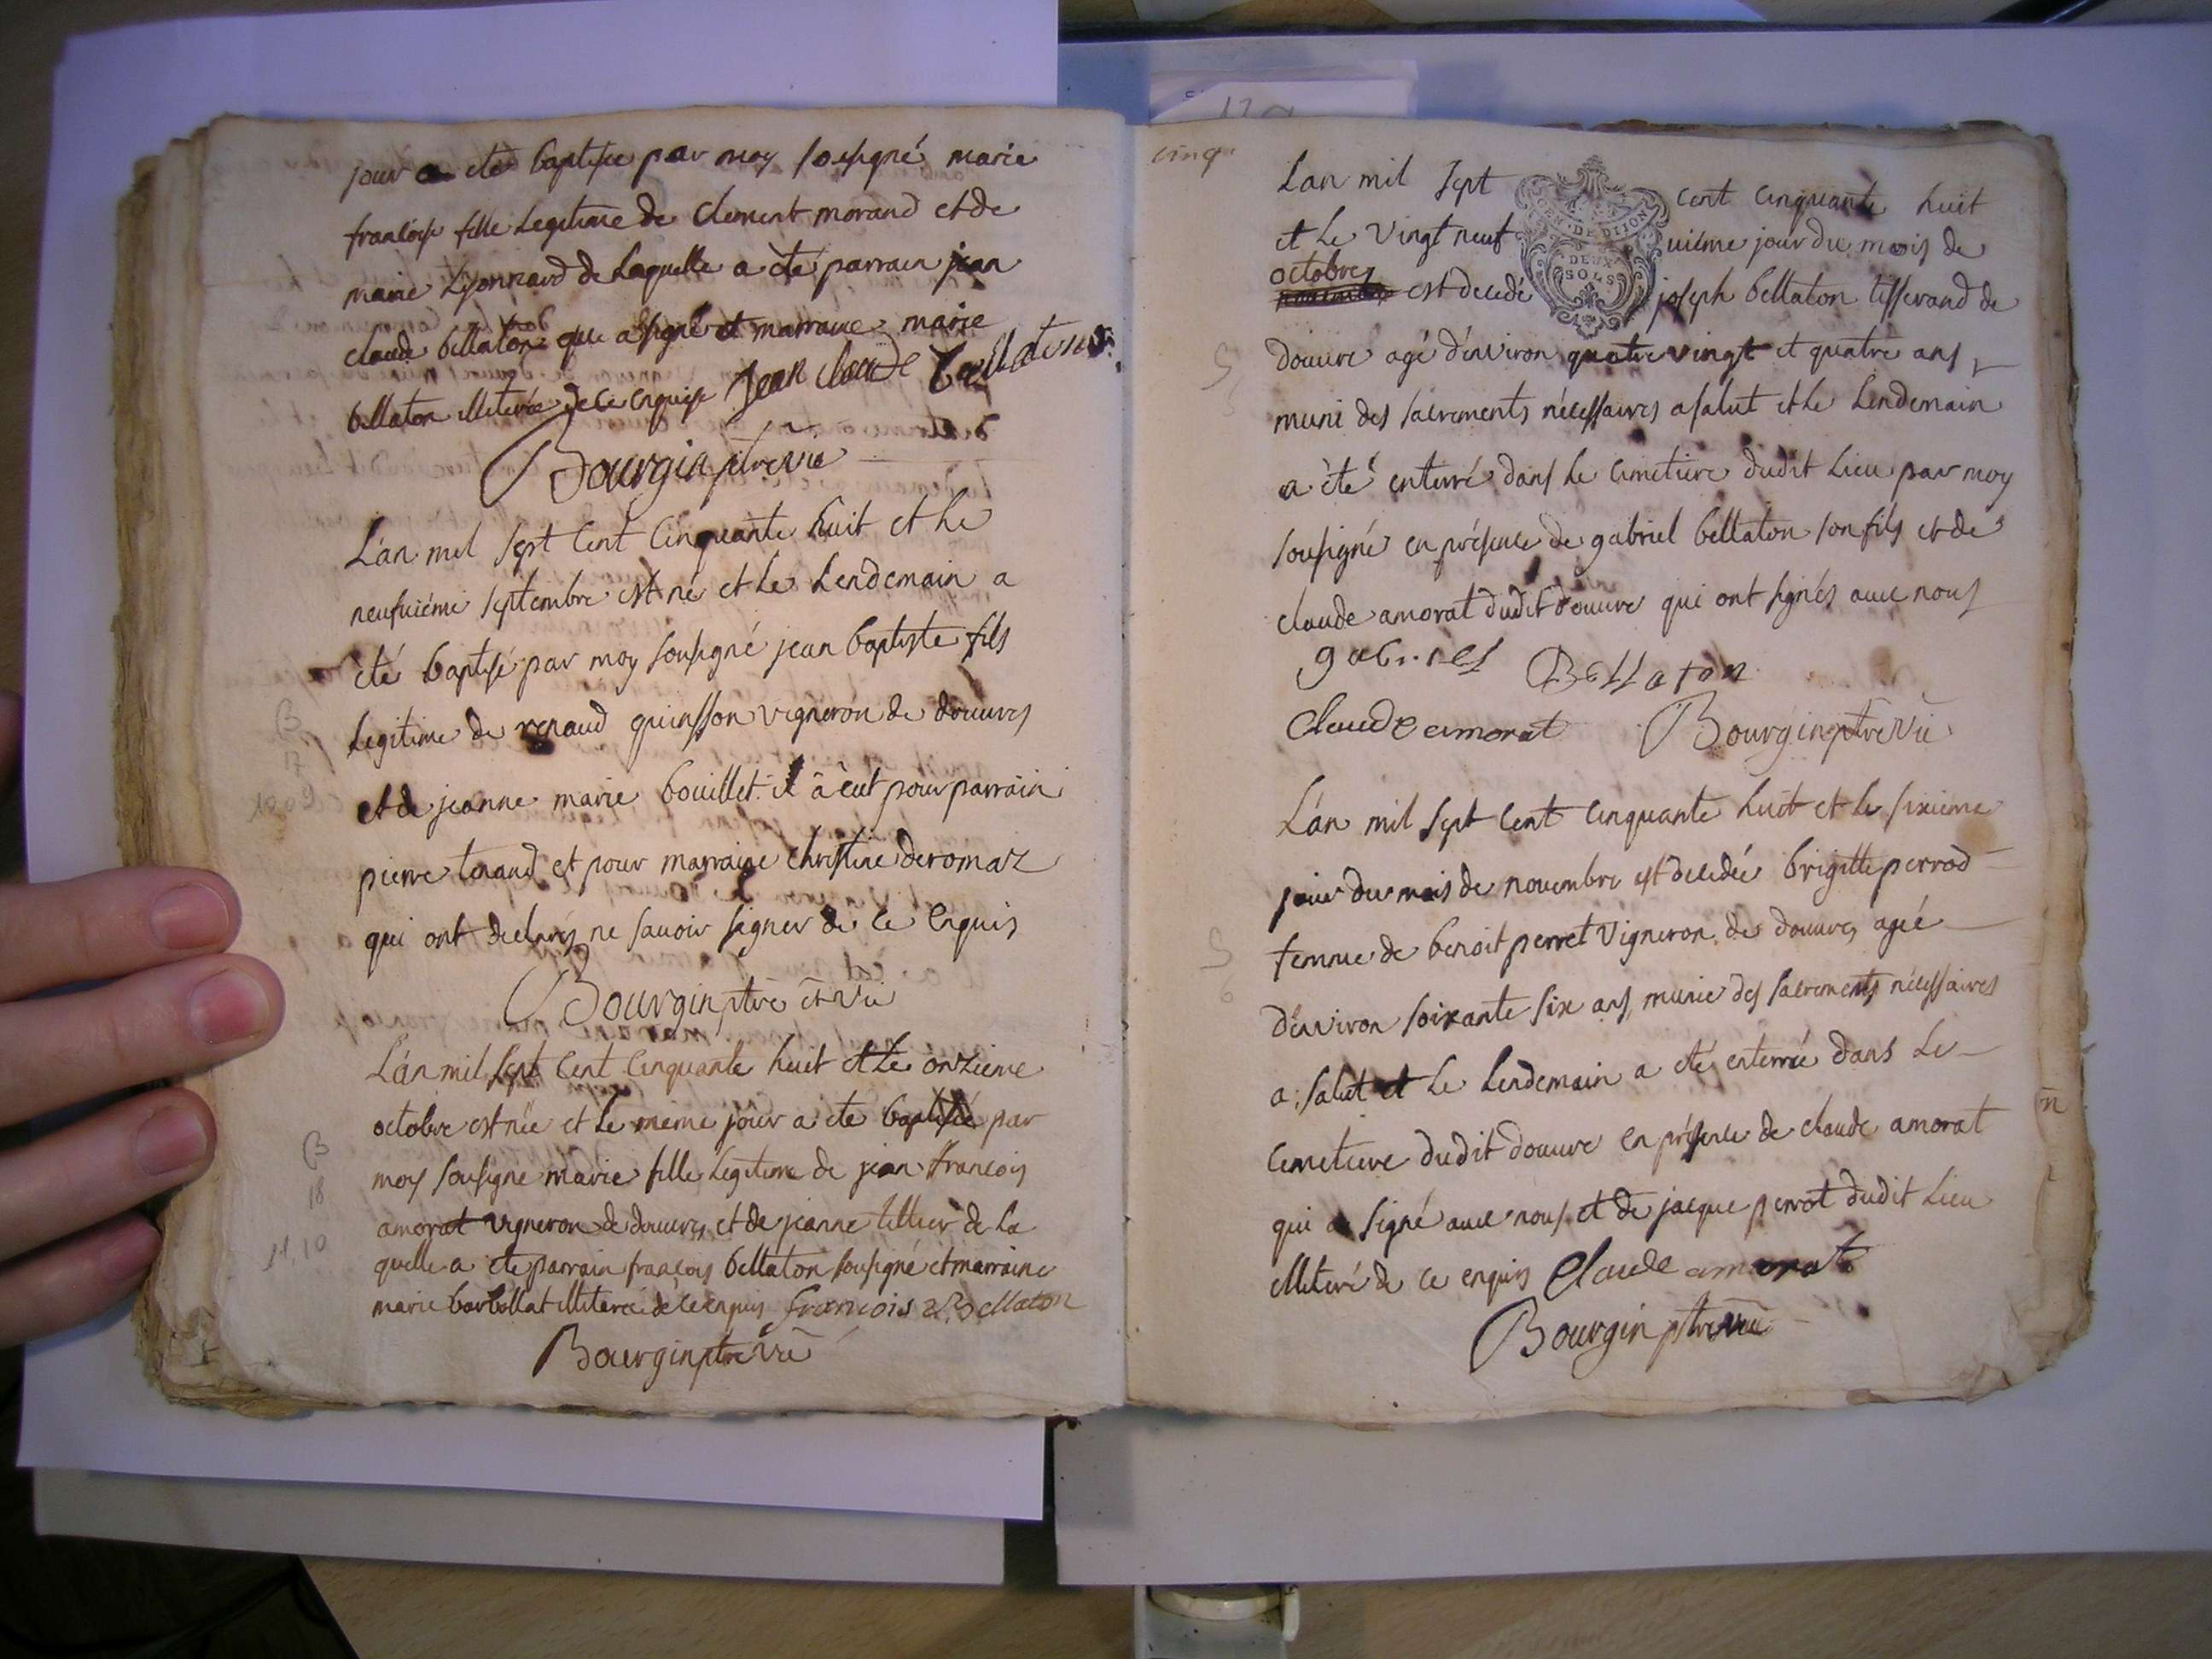 jour a eté baptisée par moy sousigné marie
francoise fille Legitime de Clement morand et de
marie Lyonnard de Laquelle a eté parrain jean
claude bellaton qui a signé et marraine marie
bellaton illiterée de ce enquise jean claude bellaton
Bourgin ptre vic
L'an mil sept Cent Cinquante huit et Le
neufuiéme septembre est né et Le Lendemain a
eté baptisé par moy sousigné jean baptiste fils
Legitime de renaud guinsson vigneron de douvres
et de jeanne marie bouillet il a eut pour parrain
pierre tenand et pour marraine christine deromaz
qui ont declarés ne savoir signer de ce enquis
Bourgin ptre et vic
B
17
10 09
L'an mil sept Cent Cinquante huit et Le onzieme
octobre est née et Le meme jour a ete baptisée par
moy sousigné marie fille Legitime de jean francois
amorat vigneron de douvres et de jeanne tillier de La
quelle a ete parrain françois bellaton sousigné et marraine
marie barbollat illiterée de ce enquis francois Bellaton
Bourgin ptre vic
B
18
11, 10
cinq
L'an mil sept cent cinquante huit
et Le vingt neuf uiéme jour du mois de
octobre
est decedé joseph bellaton tisserand de
GEN. DE DIJON
DEUX
SOLS
douvre agé d'environ quatre vingt et quatre ans
muni des sacrements nécessaires a salut et Le Lendemain
a été enterré dans Le cimetiere dudit Lieu par moy
sousigné en présence de gabriel bellaton son fils et de
claude amorat dudit douvre qui ont signés avec nous
gabriel Bellaton
Claude amorat Bourgin ptre vic
S
5
L'an mil sept Cent cinquante huit et Le sixieme
jour du mois de novembre est decedée brigitte perrod
femme de benoit perret vigneron de douvres agée
d'environ soixante six ans, munie des sacrements nécessaires
a salut et Le Lendemain a eté enterrée dans Le
Cemetiere dudit douvre en présence de claude amorat
qui a signé avec nous et de jacque perrot dudit Lieu
illiteré de ce enquis Claude amorat
Bourgin ptre vic
S
6